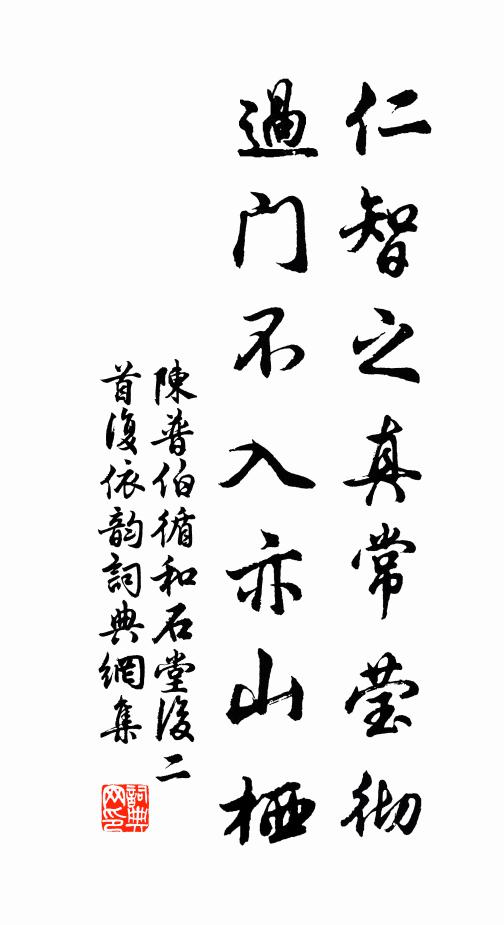 仁智之真常莹彻
過门不入亦山栖
陳普伯循和石堂後二
首復依韵詞典網集
詞典网印